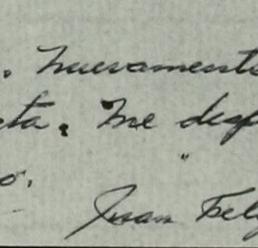 . Nuevamente
ta, Me desp
o.
Juan Feli